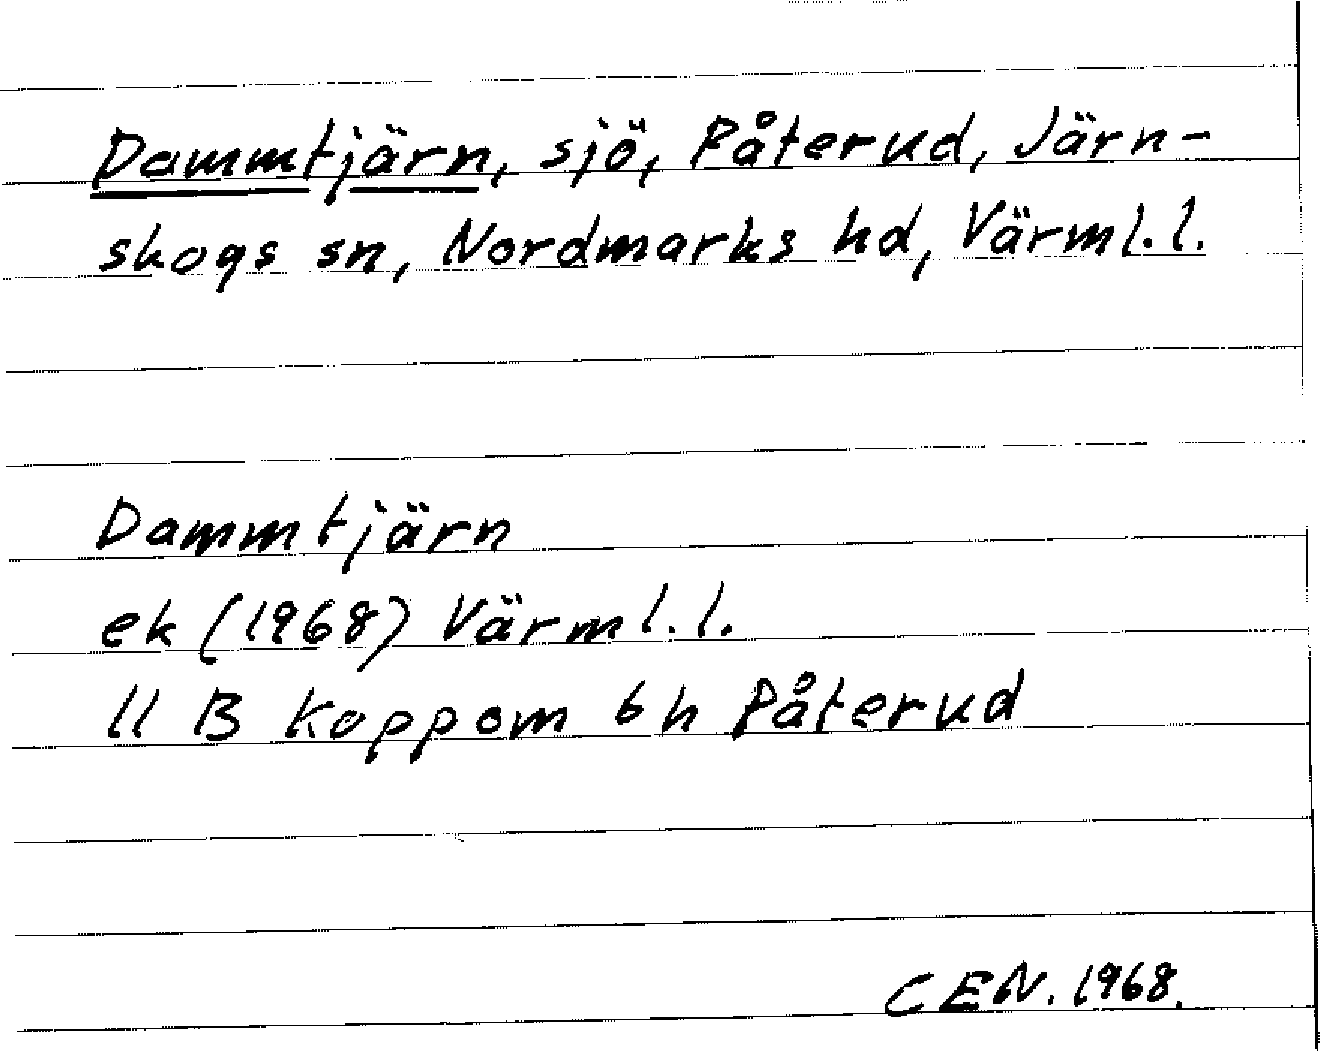 Dammtjärn, sjö, Påterud, Järn-
skogs sn, Nordmarks hd, Värml. l.
Dammtjärn
ek (1968) Värml. l.
11 B Koppom 6h Påterud
CEN. 1968.